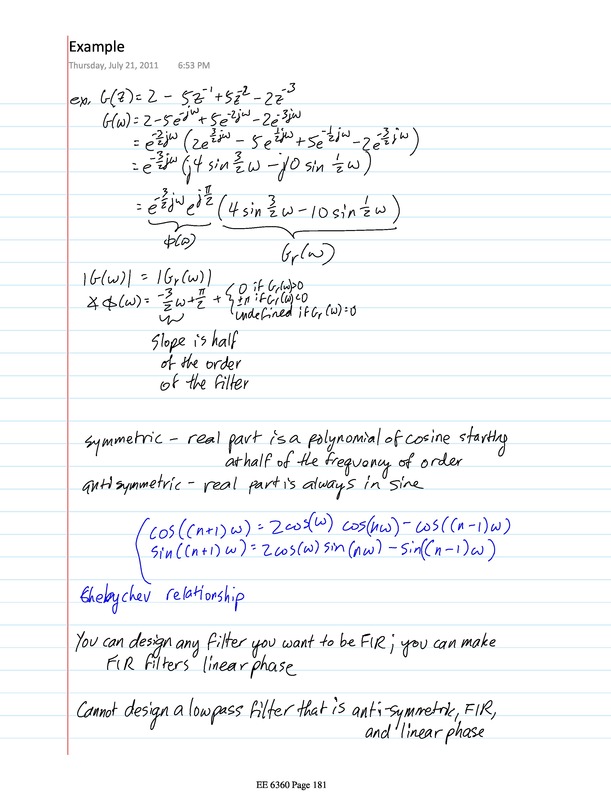 Example
Thursday, July 21, 2011 6:53 PM
ex. G(z) = 2 - 5z^-1 + 5z^-2 - 2z^-3
G(ω) = 2 - 5e^-jω + 5e^-2jω - 2e^-3jω
= e^-3/2jω (2e^3/2jω - 5e^1/2jω + 5e^-1/2jω - 2e^-3/2jω)
= e^-3/2jω (j4 sin 3/2 ω - j10 sin 1/2 ω)
= e^-3/2jω e^jπ/2 (4 sin 3/2 ω - 10 sin 1/2 ω)
ϕ(ω)
Gr(ω)
|G(ω)| = |Gr(ω)|
∡ϕ(ω) = -3/2 ω + π/2 + { 0 if Gr(ω)>0
±π if Gr(ω)<0
undefined if Gr(ω)=0
Slope is half
of the order
of the filter
symmetric - real part is a polynomial of cosine starting
at half of the frequency of order
antisymmetric - real part is always in sine
cos((n+1)ω) = 2cos(ω) cos(nω) - cos((n-1)ω)
sin((n+1)ω) = 2cos(ω) sin(nω) - sin((n-1)ω)
Chebychev relationship
You can design any filter you want to be FIR; you can make
FIR filters linear phase
Cannot design a lowpass filter that is anti-symmetric, FIR,
and linear phase
EE 6360 Page 181